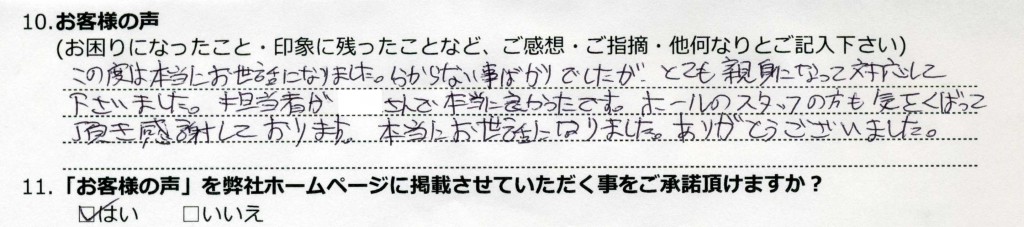 10.お客様の声
(お困りになったこと・印象に残ったことなど、ご感想・ご指摘・他何なりとご記入下さい)
この度は本当にお世話になりました。分からない事ばかりでしたが、とても親身になって対応して
下さいました。担当者が さんで本当に良かったです。ホールのスタッフの方も気をくばって
頂き感謝しております。本当にお世話になりました。ありがとうございました。
11.「お客様の声」を弊社ホームページに掲載させていただく事をご承諾頂けますか？
☑はい □いいえ